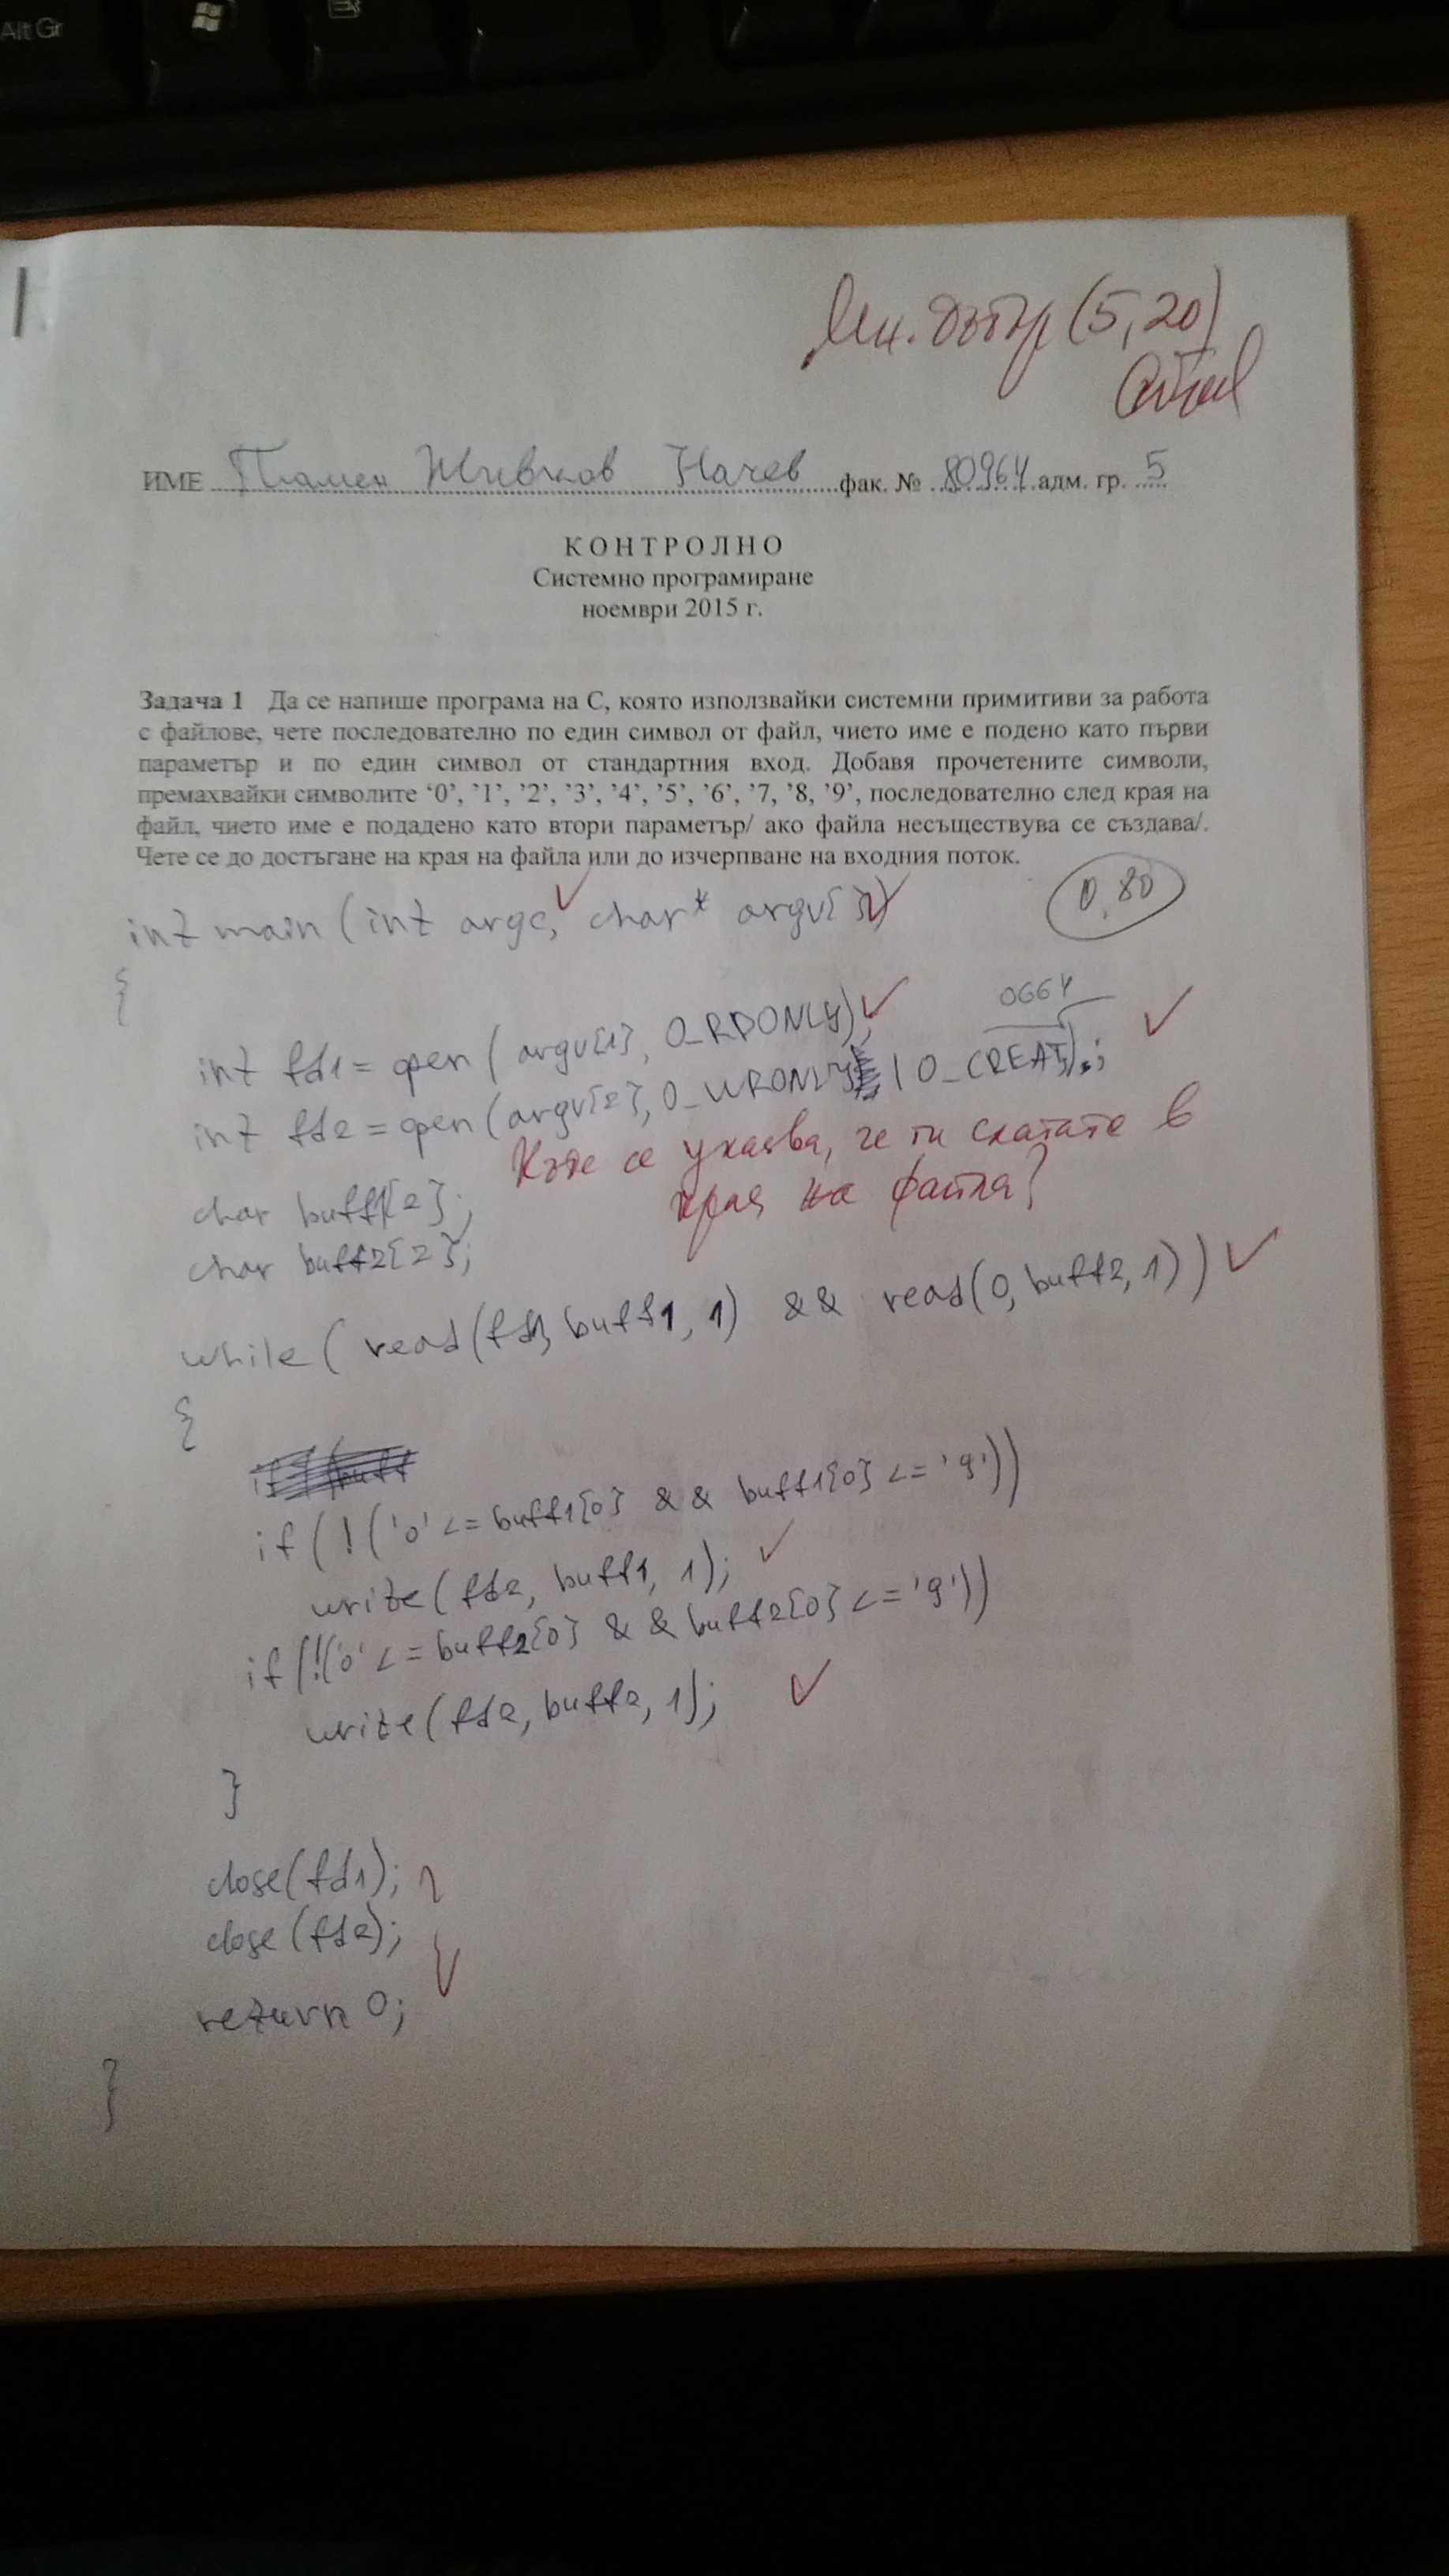 Alt Gr
Мн. добър (5,20)
ИМЕ Пламен Живков Начев фак. № 80964 адм. гр. 5
КОНТРОЛНО
Системно програмиране
ноември 2015 г.
Задача 1 Да се напише програма на С, която използвайки системни примитиви за работа
с файлове, чете последователно по един символ от файл, чието име е подено като първи
параметър и по един символ от стандартния вход. Добавя прочетените символи,
премахвайки символите ‘0’, ’1’, ’2’, ’3’, ’4’, ’5’, ’6’, ’7, ’8, ’9’, последователно след края на
файл, чието име е подадено като втори параметър/ ако файла несъществува се създава/.
Чете се до достъгане на края на файла или до изчерпване на входния поток.
0,80
int main (int argc, char* argv[])
{
int fd1 = open( argv[1], O_RDONLY);
0664
int fd2 = open(argv[2], O_WRONLY | O_CREAT);
Къде се указва, че ги слагате в
края на файла?
char buff1[2];
char buff2[2];
while( read(fd1, buff1, 1) && read(0, buff2, 1))
{
if(!('0' <= buff1[0] && buff1[0] <= '9'))
write(fd2, buff1, 1);
if(!('0' <= buff2[0] && buff2[0] <= '9'))
write(fd2, buff2, 1);
}
close(fd1);
close(fd2);
return 0;
}